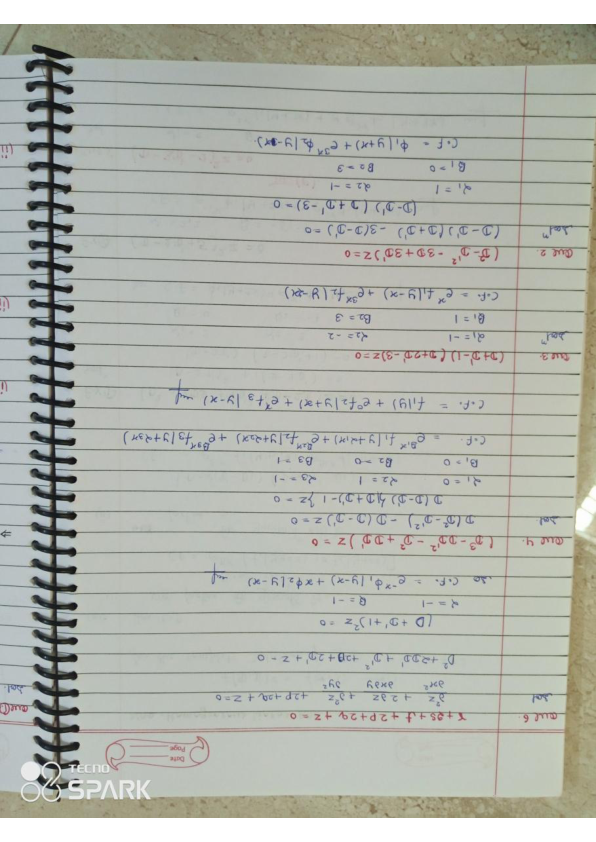 Date
Page
Que 6. r + 2s + t + 2p + 2q + z = 0
Sol. ∂²z/∂x² + 2∂z/∂x∂y + ∂²z/∂y² + 2p + 2q + z = 0
D² + 2DD' + D'² + 2D + 2D' + z = 0
(D + D' + 1)² z = 0
α = -1 B = -1
so C.F. = e⁻ˣ φ₁(y-x) + x φ₂(y-x)
Que 4. (D³ - DD'² - D² + DD') z = 0
Sol. D(D² - D'²) - D(D - D') z = 0
D(D-D') {(D+D') - 1} z = 0
α₁ = 0 α₂ = 1 α₃ = -1
B₁ = 0 B₂ = 0 B₃ = 1
C.F. = e^B₁x f₁(y+α₁x) + e^B₂x f₂(y+α₂x) + e^B₃x f₃(y+α₃x)
C.F. = f₁(y) + e⁰ f₂(y+x) + eˣ f₃(y-x)
Que 3. (D+D'-1) (D+2D'-3) z = 0
Solⁿ α₁ = -1 α₂ = -2
B₁ = 1 B₂ = 3
C.F. = eˣ f₁(y-x) + e³ˣ f₂(y-2x)
Que 2 (D² - D'² - 3D + 3D') z = 0
Solⁿ (D-D') (D+D') - 3(D-D') = 0
(D-D') (D+D'-3) = 0
α₁ = 1 α₂ = -1
B₁ = 0 B₂ = 3
C.F. = φ₁(y+x) + e³ˣ φ₂(y-x)
Que 1
Sol.
TECNO
SPARK